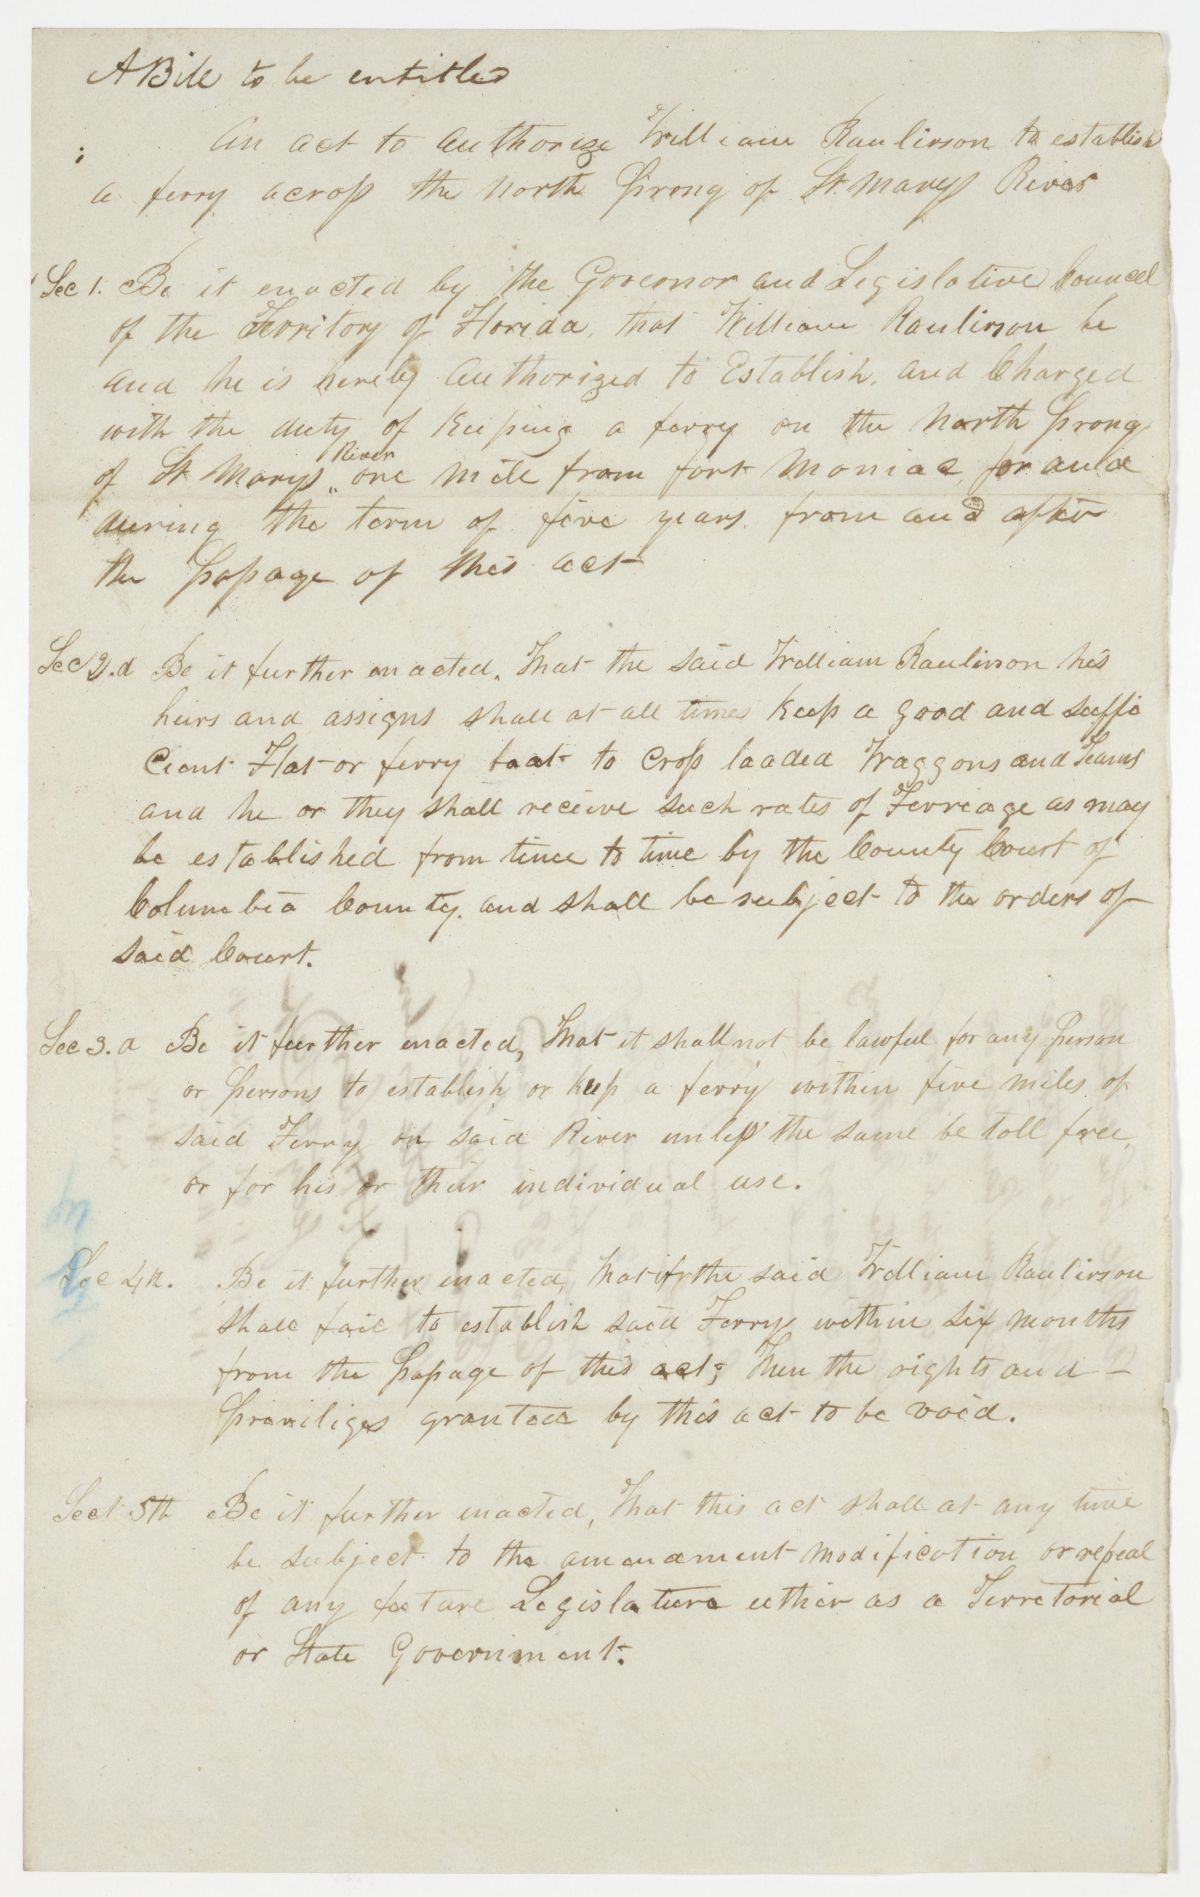 A Bill to be entitled
An act to authorize William Raulirson to establish
a ferry across the north Prong of St. Marys River
Sec 1. Be it enacted by the Govornor and Legislative Councel
of the Territory of Florida, that William Raulirson be
and he is hereby authorized to Establish, and Charged
with the duty of Keeping a ferry on the North Prong
of St Marys River one mile from fort Moniac, for and
during the term of five years from and after
the passage of this act
Sec 2.d Be it further enacted, That the said William Raulirson his
heirs and assigns shall at all times Keep a good and suffi
cient Flat or ferry boat to cross loaded Waggons and Teams
and he or they shall receive such rates of Ferriage as may
be established from time to time by the County Court of
Columbia County, and shall be subject to the orders of
said Court.
Sec 3.d Be it further enacted, That it shall not be lawful for any Person
or Persons to establish or keep a ferry within five miles of
said Ferry on said River unless the same be toll free,
or for his or their individual use.
Sec 4th. Be it further enacted, that if the said William Raulirson
shall fail to establish said Ferry within six months
from the passage of this act; Then the rights and
Priviliges granted by this act to be void.
Sect 5th Be it further enacted, That this act shall at any time
be subject to the amendment modification or repeal
of any future Legislature either as a Terretorial
or State Government.